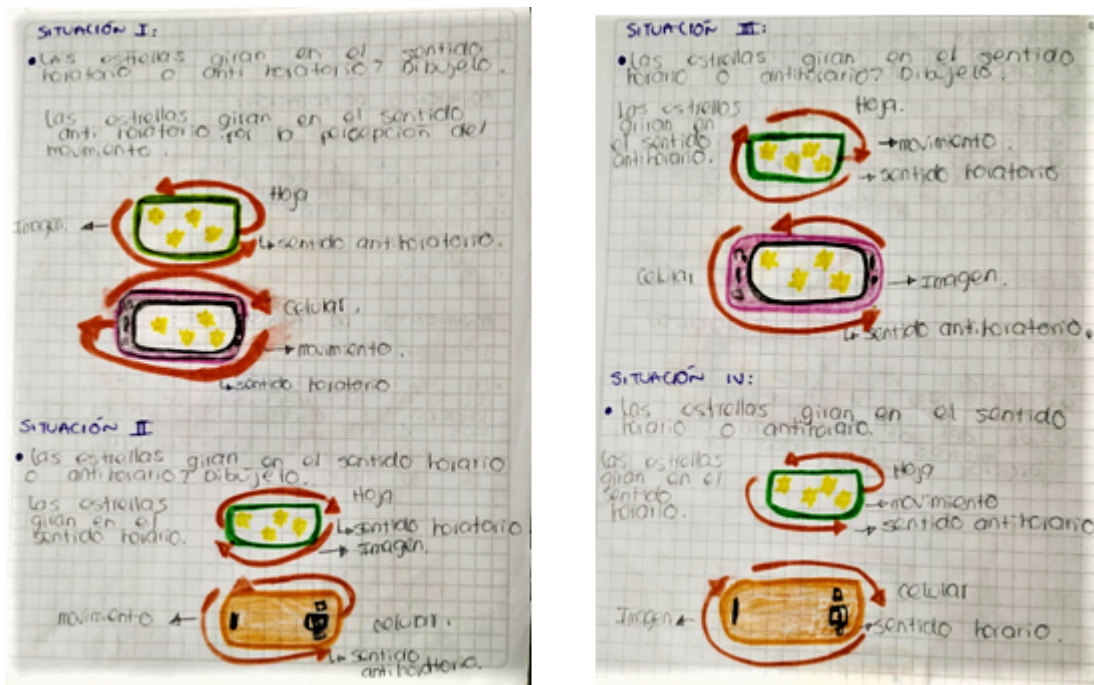 SITUACIÓN I:
• Las estrellas giran en el sentido
horatorio o anti horatorio? Dibujelo.
Las estrellas giran en el sentido
anti horatorio por la percepción del
movimiento.
Hoja
Imagen.
↳ sentido antihoratorio.
celular.
→ movimiento.
↳ sentido horatorio
SITUACIÓN II
• Las estrellas giran en el sentido horario
o antihorario? Dibujelo.
Las estrellas
giran en el
sentido horario.
Hoja
↳ sentido horatorio
→ Imagen.
movimiento
celular.
↳ sentido
antihoratorio.
SITUACIÓN III:
• Las estrellas giran en el sentido
horario o antihorario? Dibujelo.
Las estrellas
giran en
el sentido
antihorario.
Hoja.
→ movimiento.
→ sentido horatorio
celular
→ Imagen.
↳ sentido antihoratorio.
SITUACIÓN IV:
• Las estrellas giran en el sentido
horario o antihorario.
Las estrellas
giran en el
sentido
horario.
Hoja
movimiento
→ sentido antihorario
celular
Imagen
sentido horario.